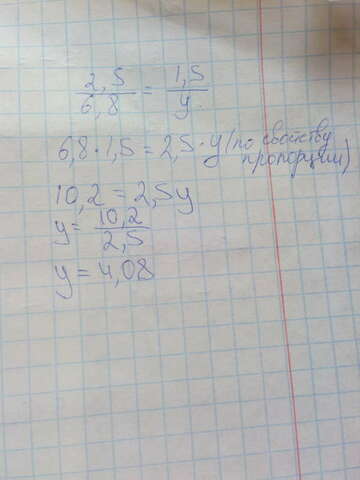 2,5/6,8 = 1,5/y
6,8·1,5=2,5·y (по свойству
пропорции)
10,2=2,5y
y= 10,2/2,5
y=4,08